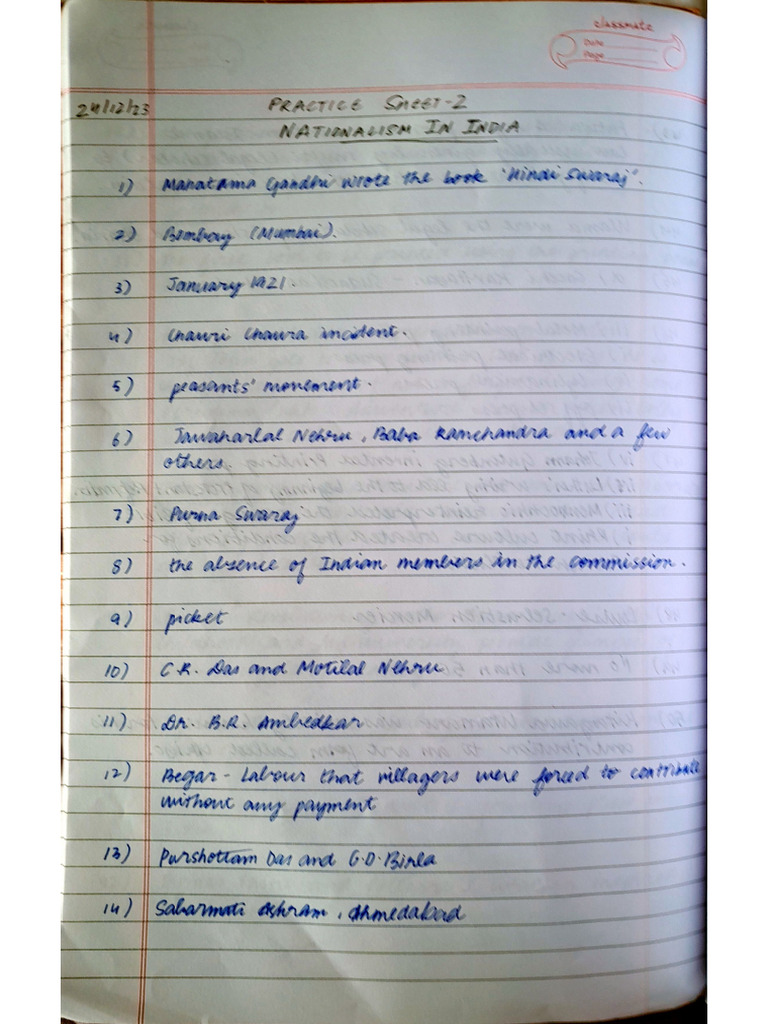 classmate
Date
Page
24/12/23
PRACTICE SHEET-2
NATIONALISM IN INDIA
1) Mahatama Gandhi wrote the book 'Hindi Swaraj'.
2) Bombay (Mumbai).
3) January 1921.
4) Chauri Chaura incident.
5) peasants' movement.
6) Jawaharlal Nehru, Baba Ramchandra and a few
others.
7) Purna Swaraj
8) the absence of Indian members in the commission.
9) picket
10) C.R. Das and Motilal Nehru
11) Dr. B.R. Ambedkar
12) Begar - Labour that villagers were forced to contribute
without any payment
13) Purshottam Das and G.D. Birla
14) Sabarmati Ashram, Ahmedabad